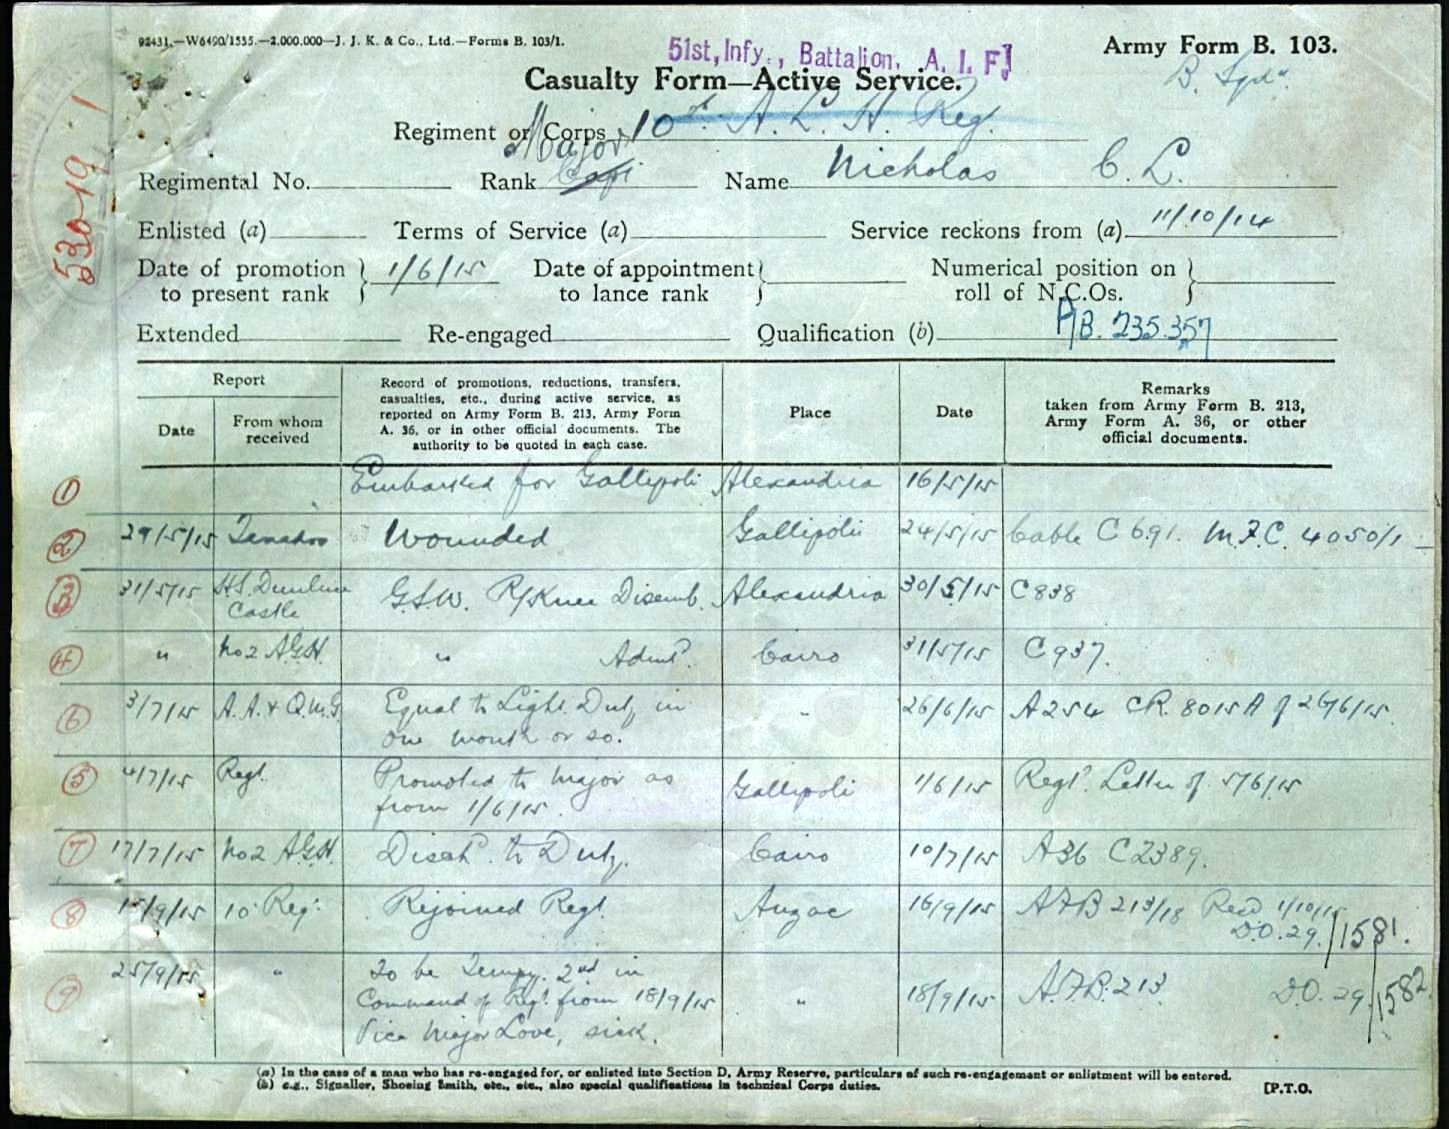 92431.—W6490/1555.—2.000.000—J. J. K. & Co., Ltd.—Forms B. 103/1.
51st, Infy., Battalion, A. I. F.
Army Form B. 103.
Casualty Form—Active Service.
B. Sqdn
Regiment or Corps 10th A. L. H. Reg.
Major
Regimental No. Rank Capt Name Nicholas C. L.
53019
Enlisted (a) Terms of Service (a) Service reckons from (a) 11/10/14
Date of promotion to present rank } 1/6/15 Date of appointment to lance rank } Numerical position on roll of N.C.Os. }
Extended Re-engaged Qualification (b)
AB. 235.357
Report
Date
From whom received
Record of promotions, reductions, transfers,
casualties, etc., during active service, as
reported on Army Form B. 213, Army Form
A. 36, or in other official documents. The
authority to be quoted in each case.
Place
Date
Remarks
taken from Army Form B. 213,
Army Form A. 36, or other
official documents.
1 Embarked for Gallipoli Alexandria 16/5/15
2 29/5/15 Wounded Gallipoli 24/5/15 Cable C 691. M.F.C. 4050/1
3 31/5/15 H.S. Dunluce Castle G.S.W. R/Knee Disemb. Alexandria 30/5/15 C838
4 " No 2 A.G.H. " Admd. Cairo 31/5/15 C937.
6 3/7/15 A.A. & Q.M.G. Equal to Light Duty in Cairo
one month or so. " 26/6/15 A254 CR. 8015A of 26/6/15.
5 4/7/15 Regt. Promoted to Major as
from 1/6/15. Gallipoli 1/6/15 Regtl. Letter of 5/6/15
7 17/7/15 No 2 A.G.H. Disch. to Duty. Cairo 10/7/15 A36 C2389.
8 15/9/15 10 Reg. Rejoined Regt. Anzac 16/9/15 AFB 213/18 Recd 1/10/15
D.O. 29. /1581.
9 25/9/15 " To be Tempy. 2nd in
Command of Regt. from 18/9/15 " 18/9/15 A.F.B. 213 D.O. 29 /1582.
Vice Major Love, sick.
(a) In the case of a man who has re-engaged for, or enlisted into Section D, Army Reserve, particulars of such re-engagement or enlistment will be entered.
(b) e.g., Signaller, Shoeing Smith, etc., etc., also special qualifications in technical Corps duties.
[P.T.O.